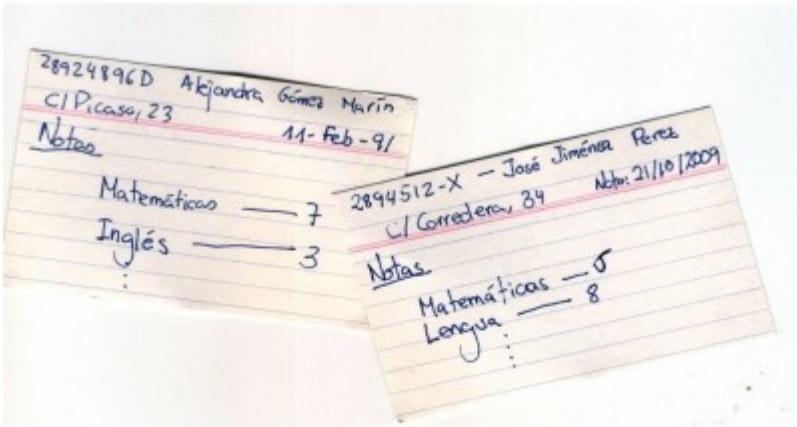 28924896D Alejandra Gómez Marín
C/ Picaso, 23
11-Feb-91
Notas
Matemáticas — 7
Inglés — 3
⋮
2894512-X — José Jiménez Perez
C/ Corredera, 34 Nto: 21/10/2009
Notas
Matemáticas — 5
Lengua — 8
⋮